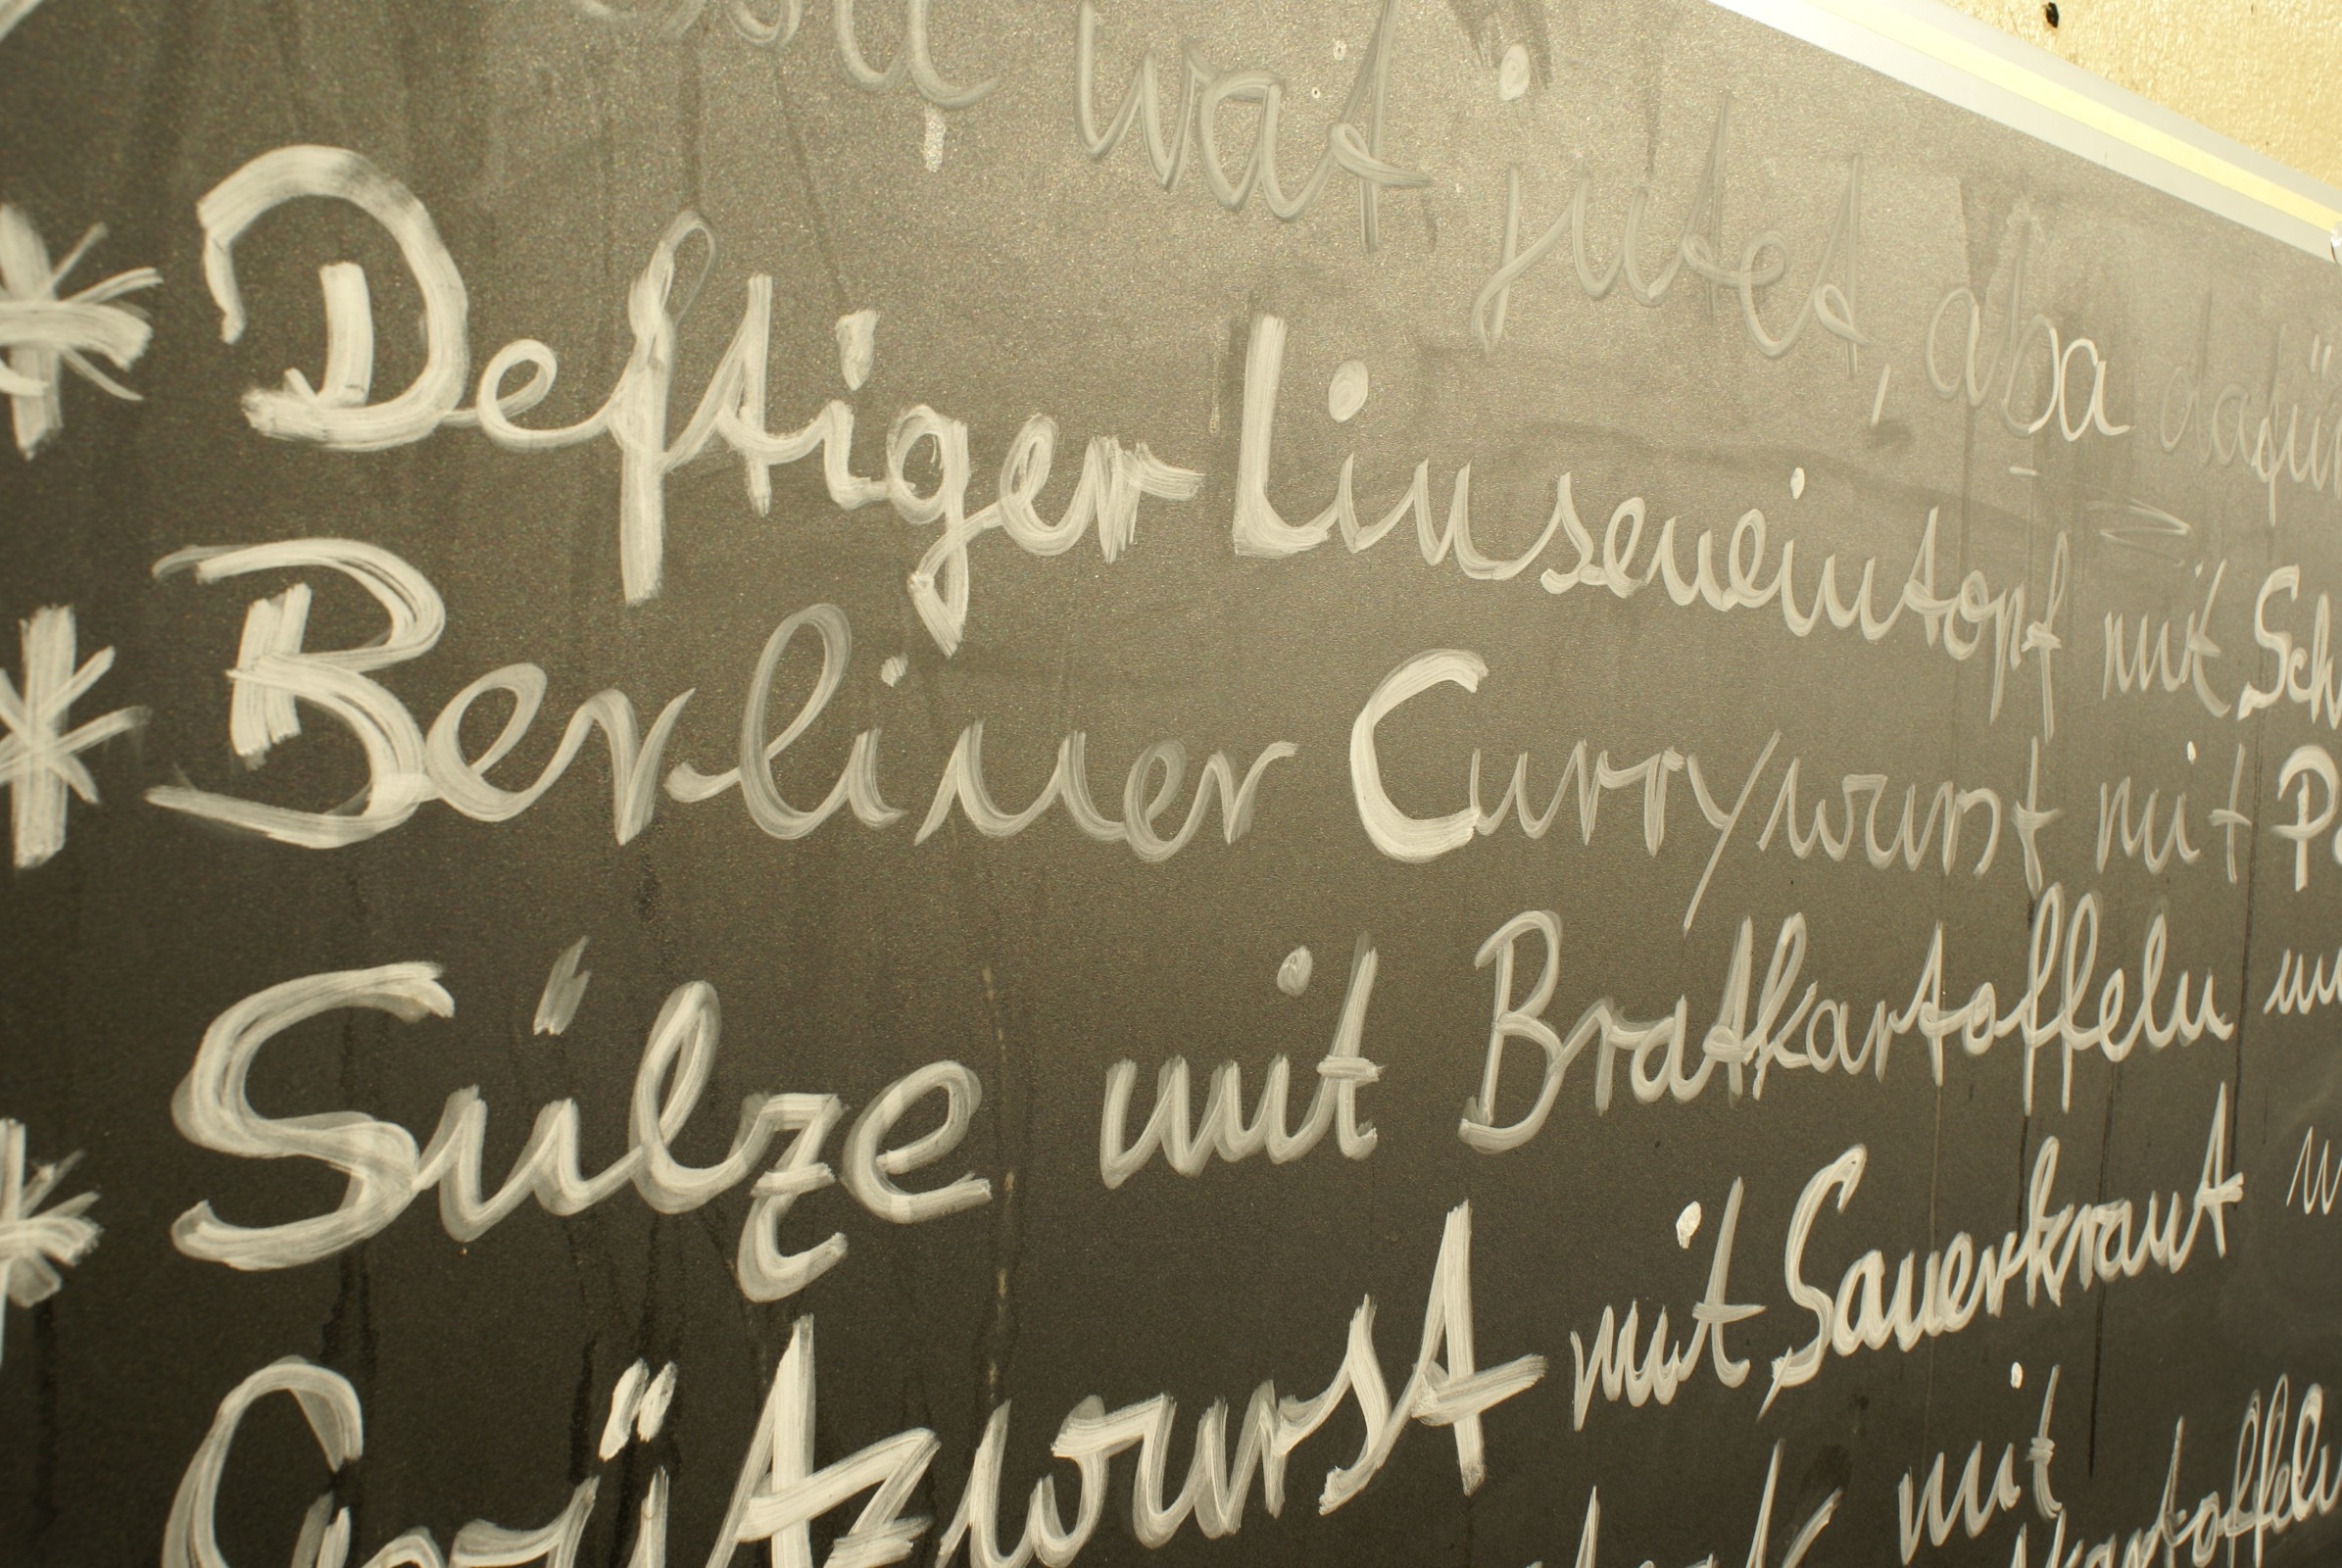 wat jutet, aba dafür
* Deftiger Linseneintopf mit Sch
* Berliner Currywurst mit P
* Sülze mit Bratkartoffeln
Grützwurst mit Sauerkraut
mit
kartoffeln